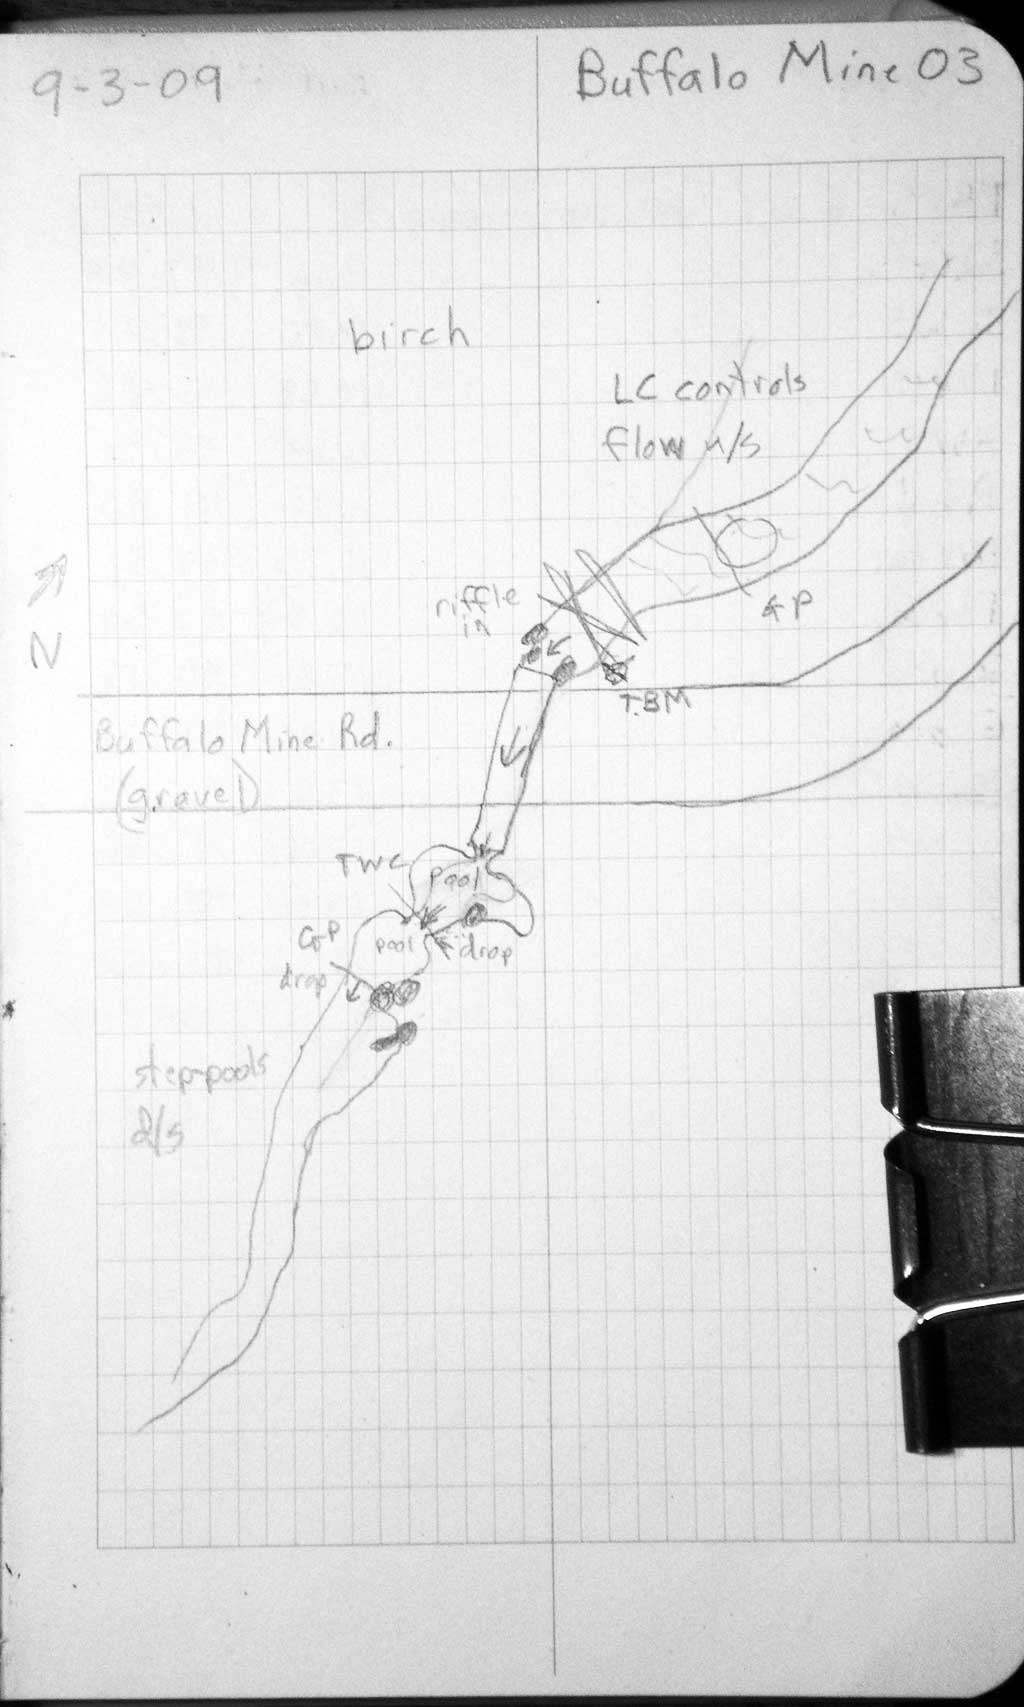 9-3-09
Buffalo Mine 03
birch
LC controls
flow u/s
riffle
in
GP
N
TBM
Buffalo Mine Rd.
(gravel)
TWC
pool
GP
pool
drop
drop
step-pools
d/s